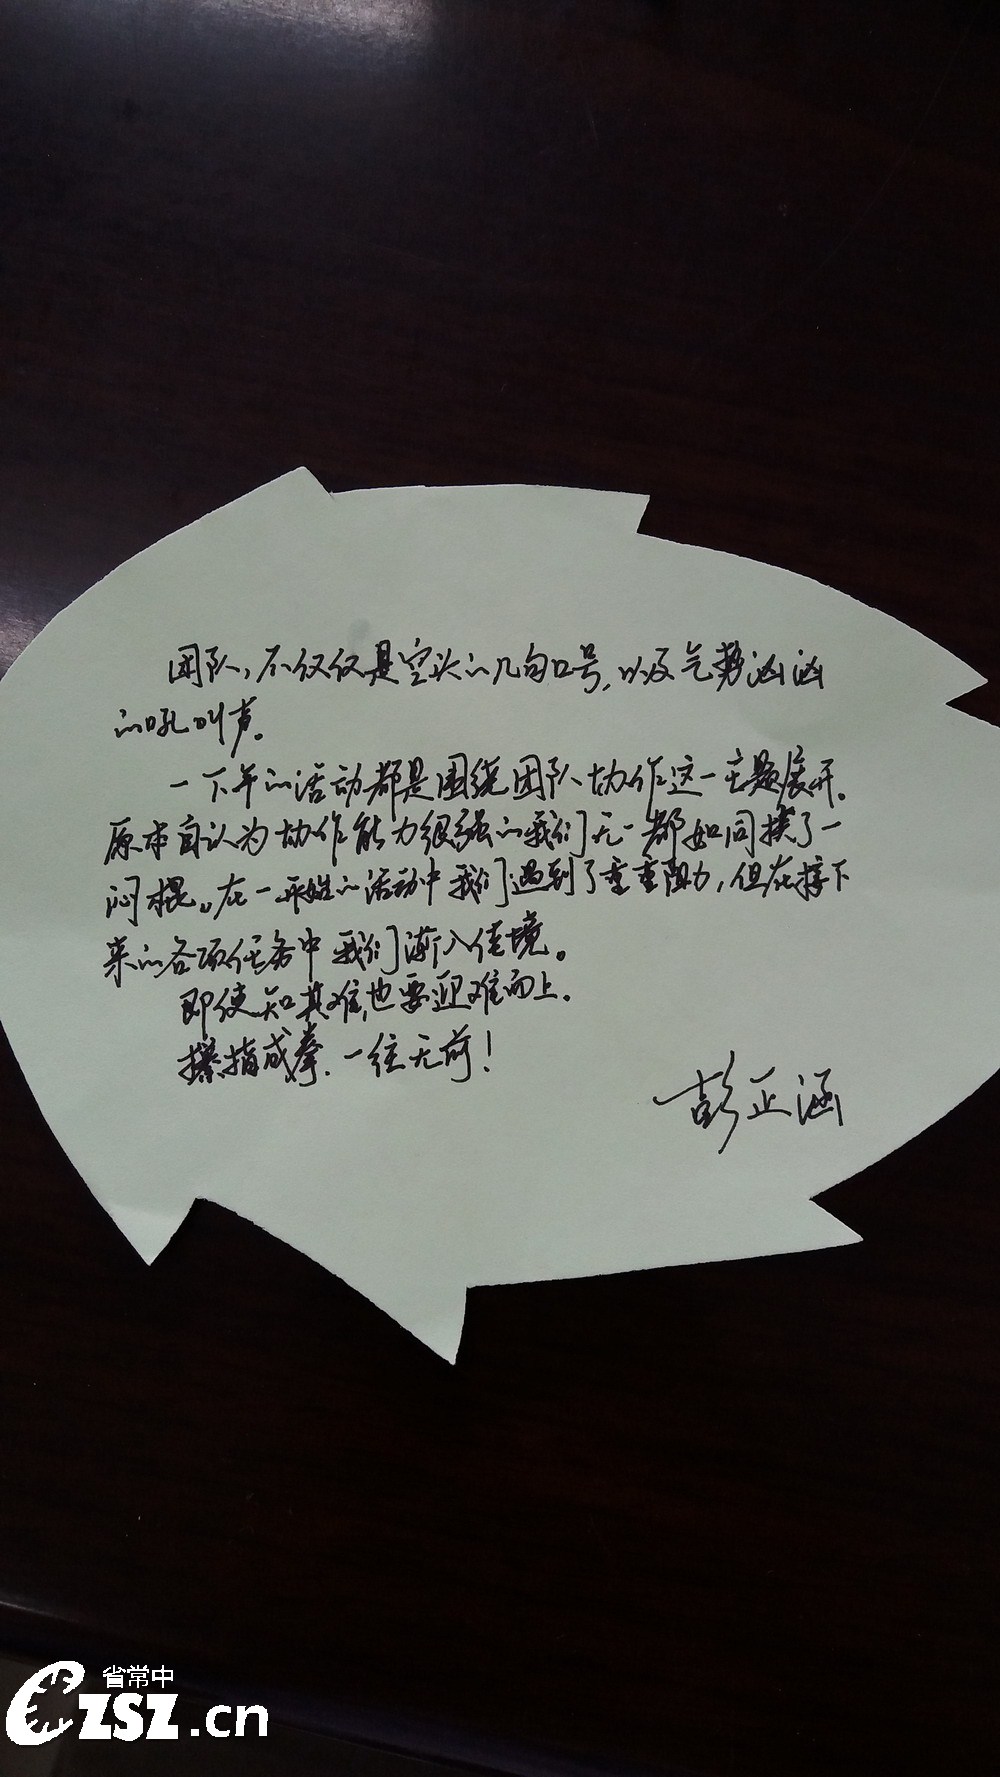 团队，不仅仅是空头的几句口号，以及气势汹汹
的吼叫声。
一下午的活动都是围绕团队协作这一主题展开。
原本自认为协作能力很强的我们无一都如同挨了一
闷棍。在一开始的活动中我们遇到了重重阻力，但在接下
来的各项任务中我们渐入佳境。
即使知其难，也要迎难而上。
攥指成拳，一往无前！
彭正涵
省常中
CZSZ.cn